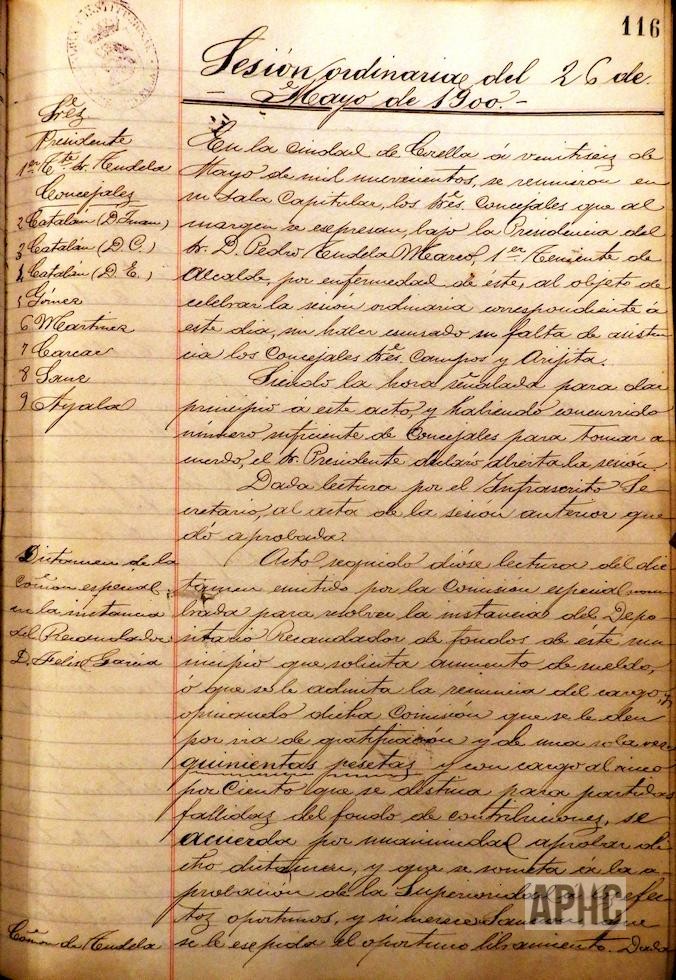 116
Sesión ordinaria del 26 de
Mayo de 1900.-
Sres
Presidente
1er Tte Sr. Tudela
Concejales
2 Catalán (D. Juan)
3 Catalán (D. C.)
4 Catalán (D. E.)
5 Gómez
6 Martinez
7 Carcar
8 Sanz
9 Ayala
En la ciudad de Corella á veintiseis de
Mayo de mil nuevecientos, se reunieron en
su Sala Capitular, los Sres Concejales que al
margen se espresan, bajo la Presidencia del
Sr. D. Pedro Tudela Marco, 1er Teniente de
Alcalde, por enfermedad de éste, al objeto de
celebrar la sesión ordinaria correspondiente á
este dia, sin haber escusado su falta de asisten
cia los Concejales Sres Campos y Arijita.
Siendo la hora señalada para dar
principio á este acto, y habiendo concurrido
número suficiente de Concejales para tomar a
cuerdo, el Sr. Presidente declaró abierta la sesión.
Dada lectura por el Infrascrito Se
cretario, al acta de la sesión anterior que
dó aprobada.
Dictamen de la
Comon especial
en la instancia
del Recaudador
D. Felix Garcia
Acto seguido dióse lectura del dic
tamen emitido por la Comisión especial nom
brada para resolver la instancia del Depo
sitario Recaudador de fondos de este mu
nicipio que solicita aumento de sueldo,
ó que se le admita la renuncia del cargo, y
opinando dicha Comisión que se le den
por via de gratificación y de una sola vez
quinientas pesetas y con cargo al cinco
por ciento que se destina para partidas
fallidas del fondo de contribuciones, se
acuerda por unanimidad aprobar di
cho dictamen, y que se someta á la a-
probación de la Superioridad á los efec
tos oportunos, y si merece Sanción que
se le espida el oportuno libramiento. Dada
Comon de Tudela
APHC